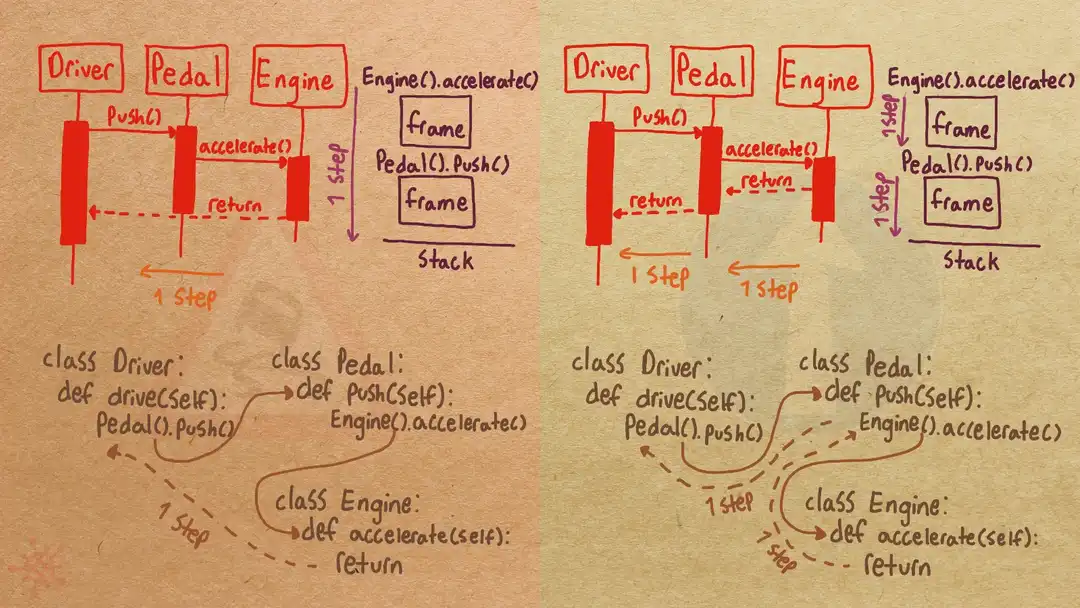 Driver
Pedal
Engine
Push()
accelerate()
return
1 Step
1 Step
Engine().accelerate()
frame
Pedal().Push()
frame
Stack
class Driver:
def drive(self):
Pedal().Push()
class Pedal:
def Push(self):
Engine().accelerate()
class Engine:
def accelerate(self):
return
1 Step
Driver
Pedal
Engine
Push()
accelerate()
return
return
1 Step
1 Step
Engine().accelerate()
1 Step
frame
Pedal().Push()
1 Step
frame
Stack
class Driver:
def drive(self):
Pedal().Push()
class Pedal:
def Push(self):
Engine().accelerate()
1 Step
class Engine:
def accelerate(self):
return
1 Step